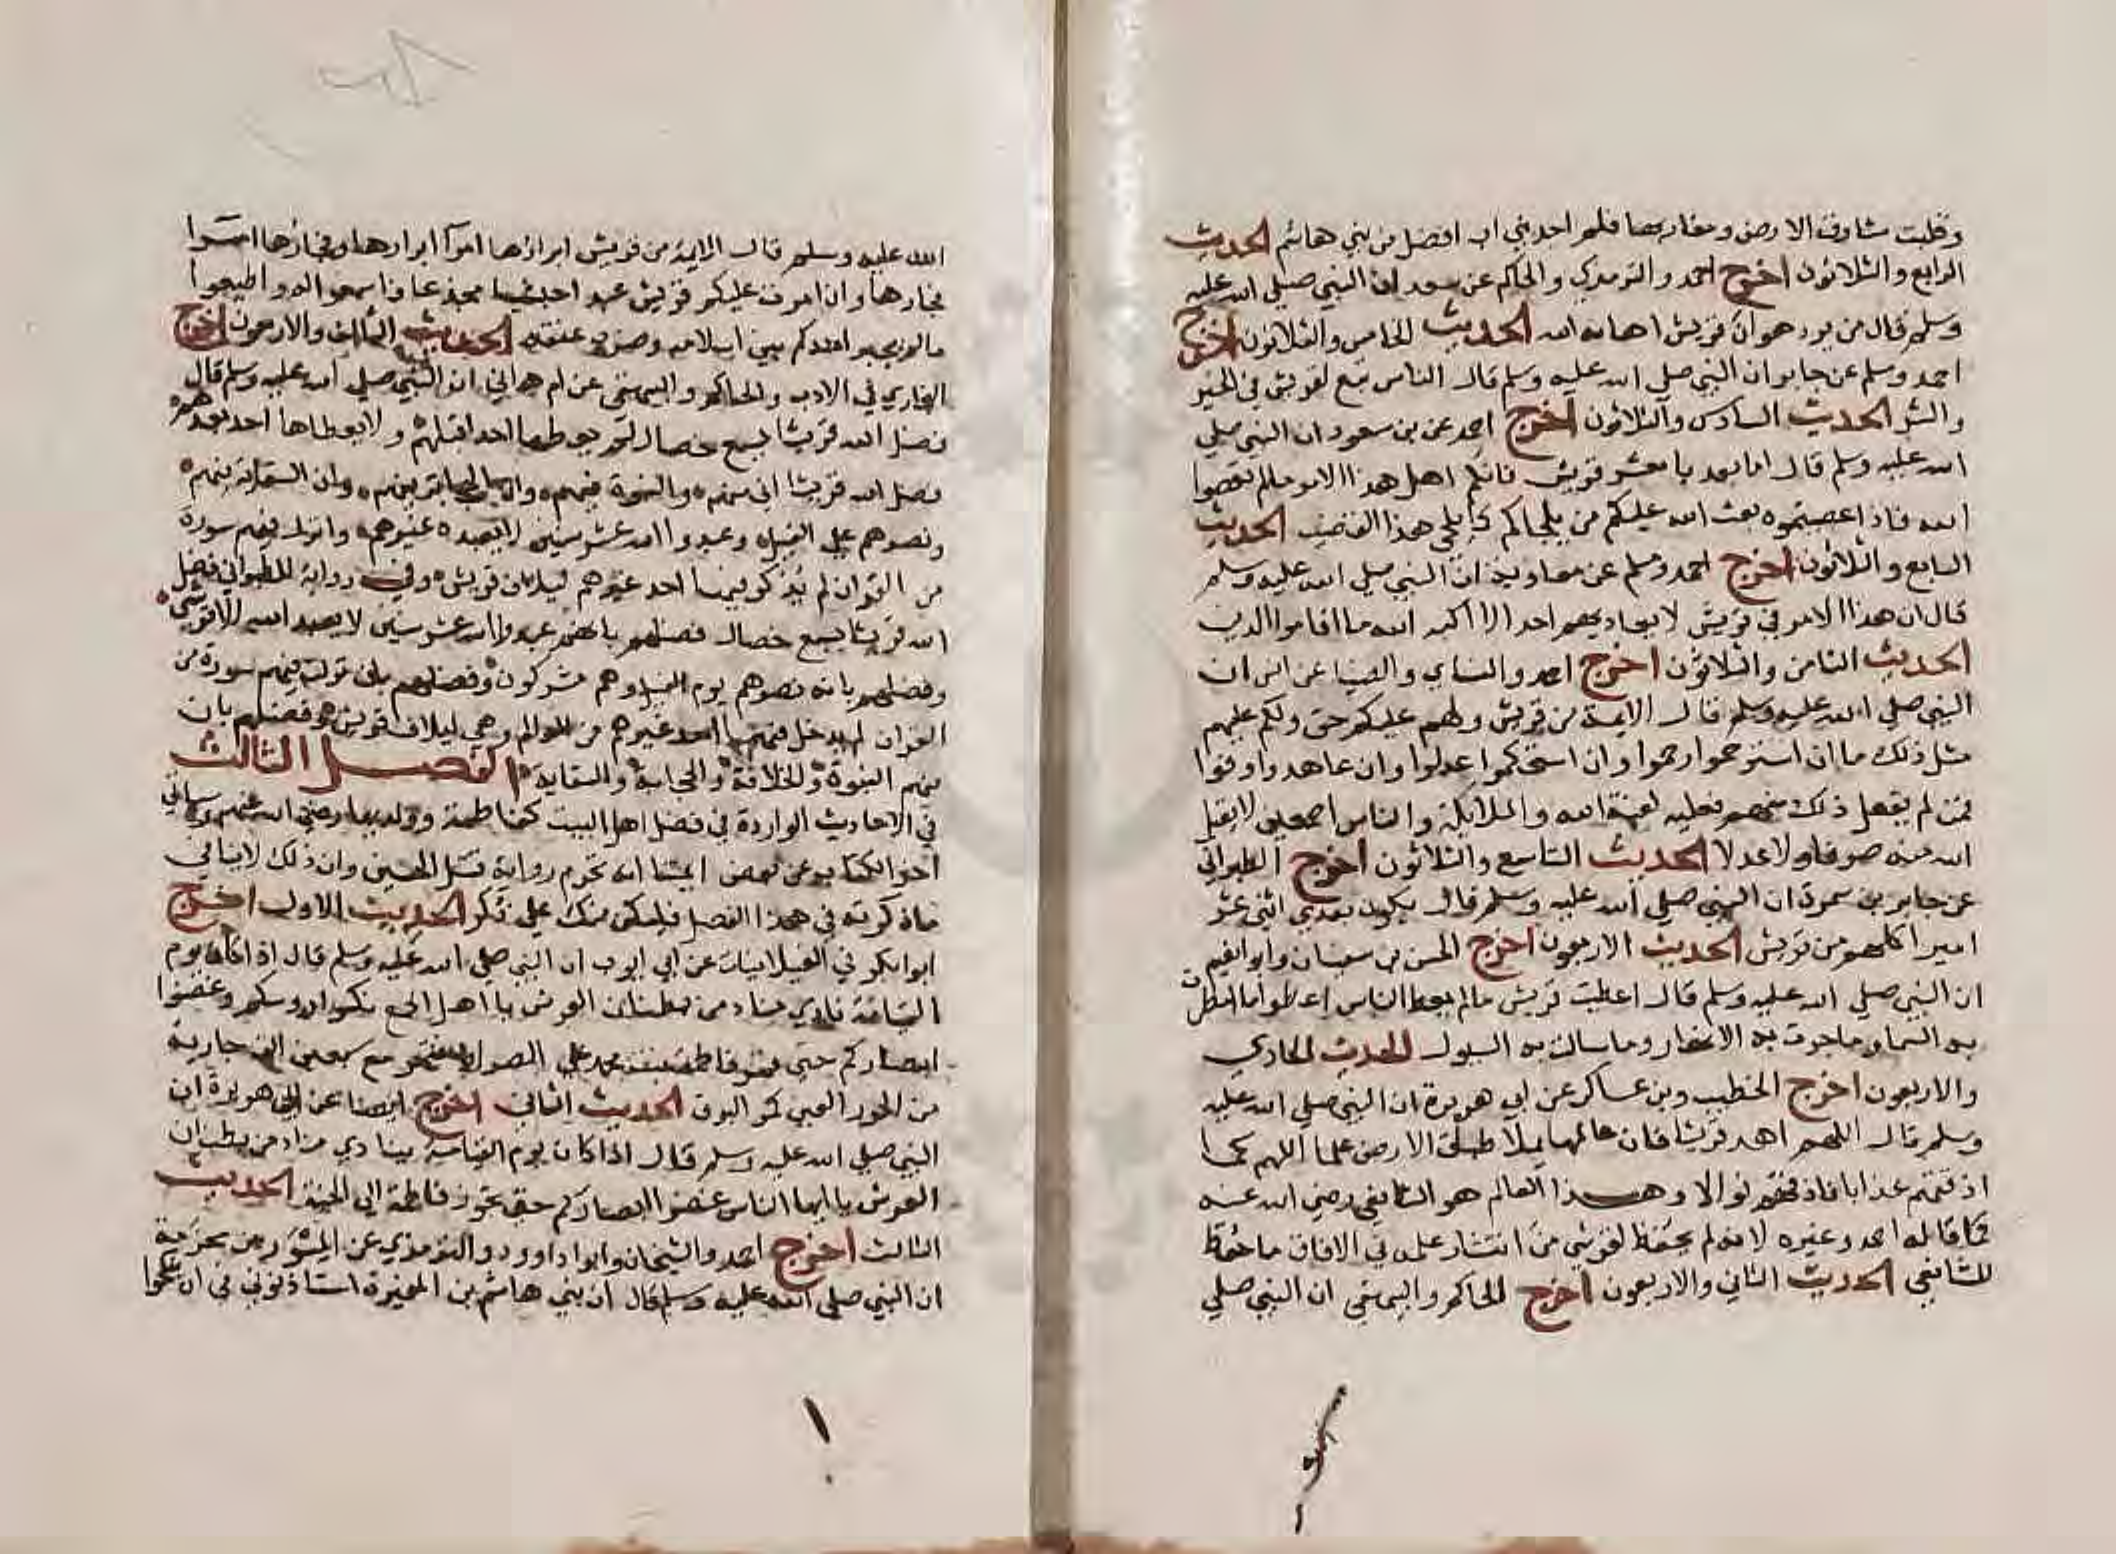 وقلبت مشارق الارض ومغاربها فلم اجد بني اب افضل من بني هاشم الحديث
الرابع والثلاثون اخرج احمد والترمذي والحاكم عن سعد ان النبي صلى الله عليه
وسلم قال من يرد هوان قريش اهانه الله الحديث الخامس والثلاثون اخرج
احمد وسلم عن جابر ان النبي صلي الله عليه وسلم قال الناس تبع لقريش في الخير
والشر الحديث السادس والثلاثون اخرج احمد عن بن سعود ان النبي صلي
الله عليه وسلم قال اما بعد يا معشر قريش فانكم اهل هذا الامر مالم تعصوا
الله فاذا عصيتموه بعث الله عليكم من يلحاكم كما يلحى هذا القضيب الحديث
السابع والثلاثون اخرج احمد وسلم عن معاوية ان النبي صلي الله عليه وسلم
قال ان هذا الامر في قريش لا يعاديهم احد الا اكبه الله ما اقاموا الدين
الحديث الثامن والثلاثون اخرج احمد والنساي والضيا عن انس ان
النبي صلي الله عليه وسلم قال الايمة من قريش ولهم عليكم حق ولكم عليهم
مثل ذلك ما ان استرحموا رحموا وان استحكموا عدلوا وان عاهدوا وفوا
فمن لم يفعل ذلك منهم فعليه لعنة الله والملايكة والناس اجمعين لا يقبل
الله منه صرفا ولا عدلا الحديث التاسع والثلاثون اخرج الطبراني
عن جابر بن سمرة ان النبي صلي الله عليه وسلم قال يكون بعدي اثني عشر
اميرا كلهم من قريش الحديث الاربعون اخرج الحسن بن سفيان وابو نعيم
ان النبي صلي الله عليه وسلم قال اعطيت قريش مالم يعط الناس اعطوا ما امطرت
به السما وما جرت به الانهار وما سالت به السيول الحديث الحادي
والاربعون اخرج الخطيب وبن عساكر عن ابي هريرة ان النبي صلي الله عليه
وسلم قال اللهم اهد قريشا فان عالمها يملا طباق الارض علما اللهم كما
اذقتهم عذابا فاذقهم نوالا وهذا العالم هو الشافعي رضي الله عنه
كما قاله احمد وغيره لانه لم يحفظ لقرشي من انتشار علمه في الافاق ما حفظ
للشافعي الحديث الثاني والاربعون اخرج الحاكم والبيهقي ان النبي صلي
الله عليه وسلم قال الايمة من قريش ابرارها امرآ ابرارها وفجارها امرا
فجارها وان امرت عليكم قريش عبد احبشيا مجدعا فاسمعوا له واطيعوا
مالم يخير احدكم بين اسلامه وضرب عنقه الحديث الثالث والاربعون اخرج
البخاري في الادب والحاكم والبيهقي عن ام هراني ان النبي صلي الله عليه وسلم قال
فضل الله قريشا بسبع خصال لم يعطها احد اقبلهم ولا يعطاها احد بعدهم
فضل الله قريشا اني منهم والنبوة فيهم وان الحجابة فيهم وان السقاية فيهم
ونصرهم علي الفيل وعبدوا الله عشر سنين لا يعبده غيرهم وانزل فيهم سورة
من القران لم يذكر فيها احد غيرهم ليلاف قريش وفي رواية للطبراني فضل
الله قريشا بسبع خصال فضلهم بانهم عبدوا الله عشر سنين لا يعبد الله الا قرشي
وفضلهم بانه نصرهم يوم الفيل وهم مشركون وفضلهم بان نزلت فيهم سورة من
القران لم يدخل فيها احد غيرهم من العالم وهي ليلاف قريش وفضلهم بان
فيهم النبوة والخلافة والحجابة والسقاية الفصل الثالث
في الاحاديث الواردة في فضل اهل البيت كفاطمة وولديها رضي الله عنهم وسياتي
اخر الكتاب عن بعض ايمتنا انه تحرم رواية قتل الحسين وان ذلك لا ينافي
ما ذكرته في هذا الفصل فليكن منك علي ذكر الحديث الاول اخرج
ابو بكر في الغيلانيات عن ابي ايوب ان النبي صلي الله عليه وسلم قال اذا كان يوم
القيامة نادي مناد من بطنان العرش يا اهل الجمع نكسوا روسكم وغضوا
ابصاركم حتي تمر فاطمة بنت محمد علي الصراط فتمر مع سبعين الف جارية
من الحور العين كمر البرق الحديث الثاني اخرج ايضا عن ابي هريرة ان
النبي صلي الله عليه وسلم قال اذا كان يوم القيامة ينادي مناد من بطنان
العرش يا ايها الناس غضوا ابصاركم حتي تجوز فاطمة الي الجنة الحديث
الثالث اخرج احمد والشيخان وابوا داوود والترمذي عن المسور من مخرمة
ان النبي صلى الله عليه وسلم قال ان بني هاشم بن المغيرة استاذنوني في ان ينكحوا